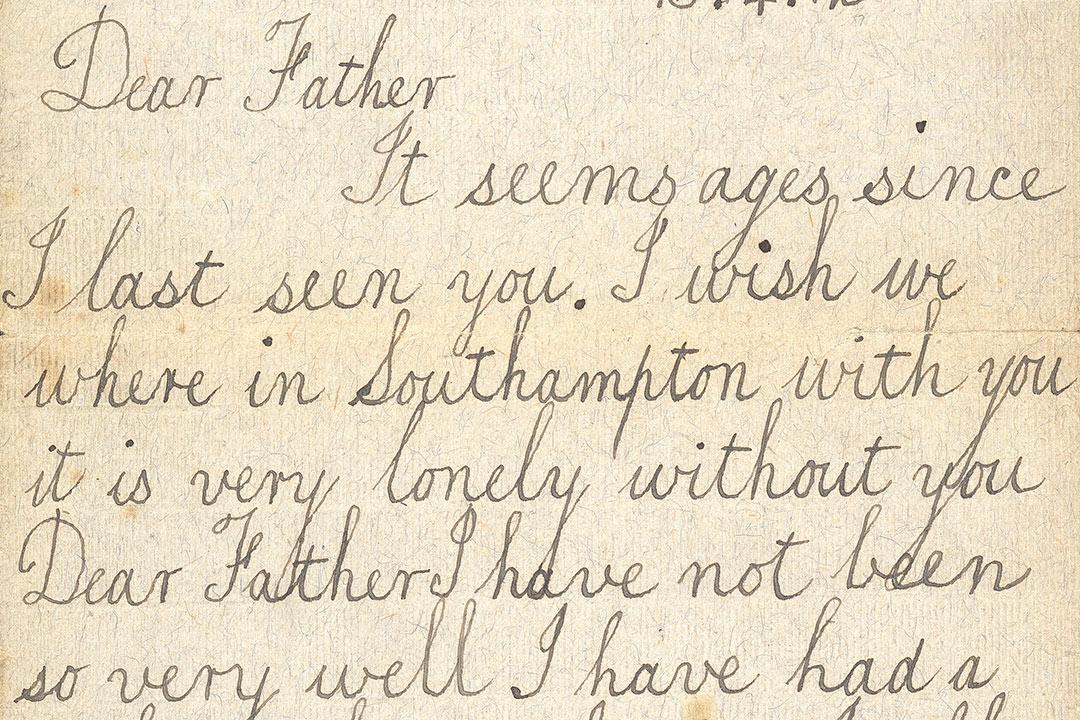 Dear Father
It seems ages since
I last seen you. I wish we
where in Southampton with you
it is very lonely without you
Dear Father I have not been
so very well I have had a